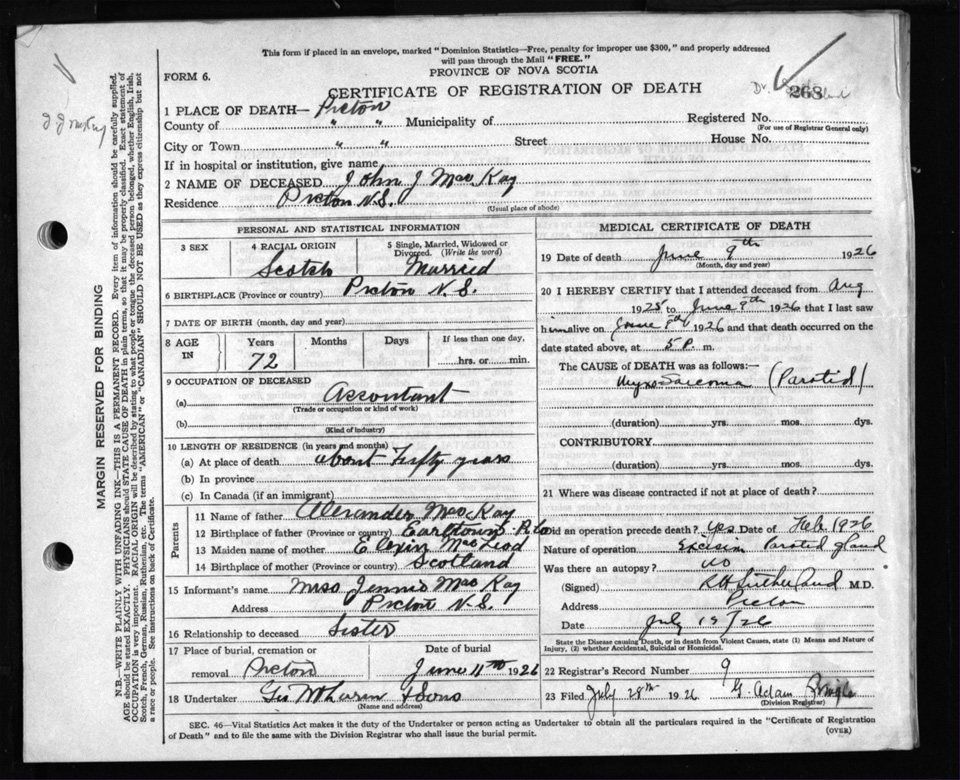 This form if placed in an envelope, marked "Dominion Statistics—Free, penalty for improper use $300," and properly addressed
will pass through the Mail "FREE."
FORM 6.
PROVINCE OF NOVA SCOTIA
CERTIFICATE OF REGISTRATION OF DEATH
268
1 PLACE OF DEATH— Pictou
County of " " Municipality of Registered No.
(For use of Registrar General only)
City or Town " " Street House No.
If in hospital or institution, give name
2 NAME OF DECEASED John J Mac Kay
Residence Pictou N.S.
(Usual place of abode)
MARGIN RESERVED FOR BINDING
N.B.—WRITE PLAINLY, WITH UNFADING INK—THIS IS A PERMANENT RECORD. Every item of information should be carefully supplied.
AGE should be stated EXACTLY. PHYSICIANS should STATE CAUSE OF DEATH in plain terms, so that it may be properly classified. Exact statement of
OCCUPATION is very important. RACIAL ORIGIN will be described by stating to what people or tongue the deceased person belonged, whether English, Irish,
Scotch, French, German, Russian, Ruthenian, etc. The terms "AMERICAN" or "CANADIAN" SHOULD NOT BE USED as they express citizenship but not
a race or people. See instructions on back of Certificate.
PERSONAL AND STATISTICAL INFORMATION
3 SEX
4 RACIAL ORIGIN
5 Single, Married, Widowed or
Divorced. (Write the word)
Scotch Married
6 BIRTHPLACE (Province or country) Pictou N.S.
7 DATE OF BIRTH (month, day and year)
8 AGE IN
Years Months Days If less than one day,
72 hrs. or min.
9 OCCUPATION OF DECEASED
(a) Accontant
(Trade or occupation or kind of work)
(b)
(Kind of industry)
10 LENGTH OF RESIDENCE (in years and months)
(a) At place of death about Fifty years
(b) In province
(c) In Canada (if an immigrant)
Parents
11 Name of father Alexander Mac Kay
12 Birthplace of father (Province or country) Earltown
13 Maiden name of mother MacLeod
14 Birthplace of mother (Province or country) Scotland
15 Informant's name Miss Jennie Mac Kay
Address Pictou N.S.
16 Relationship to deceased Sister
17 Place of burial, cremation or
removal Pictou
Date of burial
June 11th 1926
18 Undertaker & Sons
(Name and address)
MEDICAL CERTIFICATE OF DEATH
19 Date of death June 9th 1926
(Month, day and year)
20 I HEREBY CERTIFY that I attended deceased from Aug
1925 to June 9th 1926 that I last saw
him alive on June 1926 and that death occurred on
date stated above, at 5 P. m.
The CAUSE of DEATH was as follows:—
Myxo Sarcoma (Parotid)
(duration) yrs. mos. dys.
CONTRIBUTORY
(duration) yrs. mos. dys.
21 Where was disease contracted if not at place of death?
Did an operation precede death? yes Date of Feb 1926
Nature of operation Excision Parotid gland
Was there an autopsy? no
(Signed) R H Sutherland M.D.
Address Pictou
Date July 19/26
State the Disease causing Death, or in death from Violent Causes, state (1) Means and Nature of
Injury, (2) whether Accidental, Suicidal or Homicidal.
22 Registrar's Record Number 9
23 Filed July 28th 1926 G. Adam Pringle
(Division Registrar)
SEC. 46—Vital Statistics Act makes it the duty of the Undertaker or person acting as Undertaker to obtain all the particulars required in the "Certificate of Registration
of Death" and to file the same with the Division Registrar who shall issue the burial permit.
(OVER)